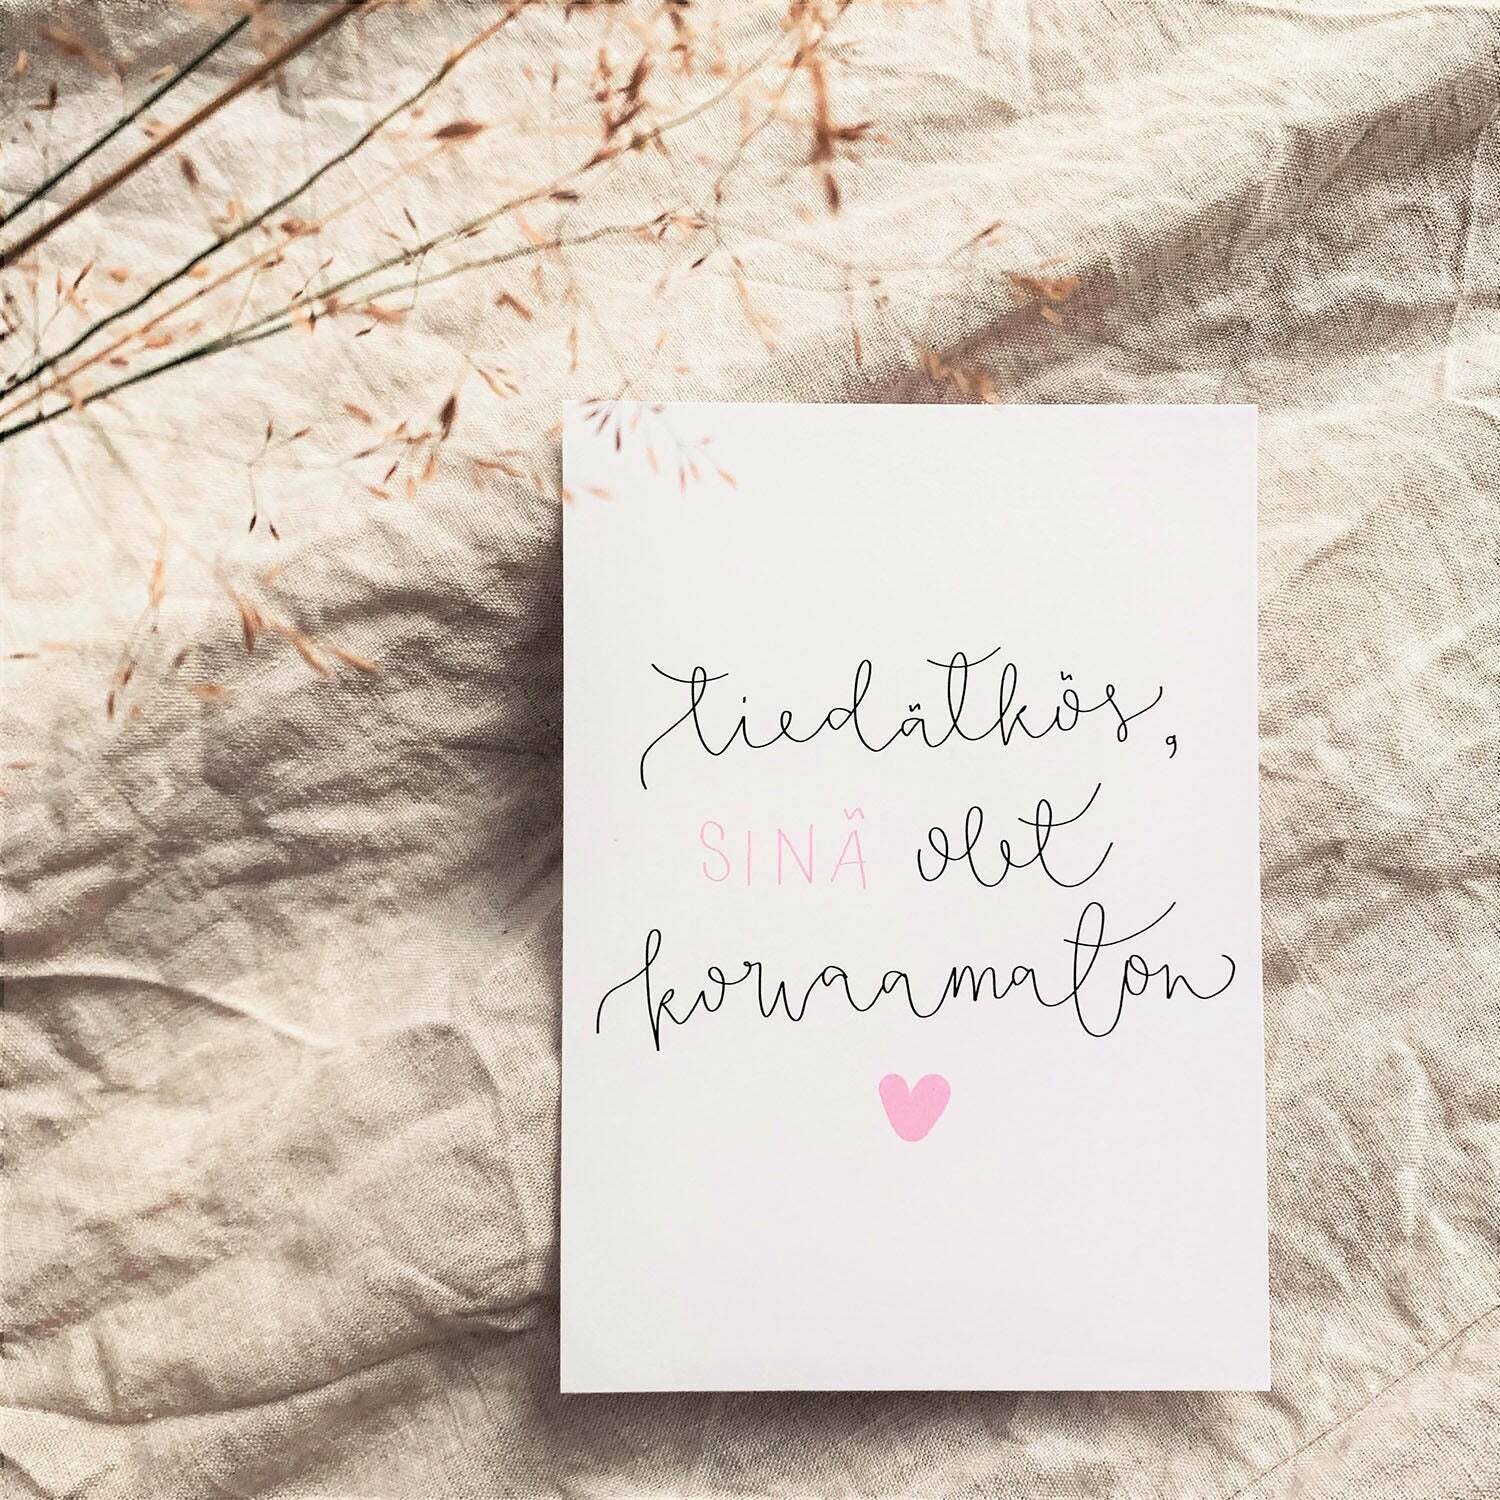 tiedätkös,
SINÄ olet
korvaamaton